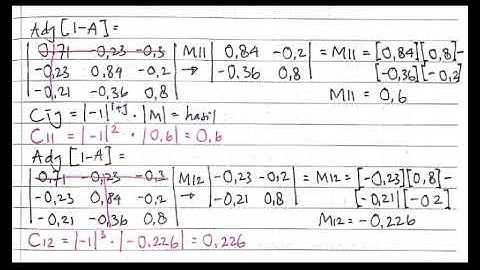 Adj [I-A] =
| 0,71 -0,23 -0,3 | M11 | 0,84 -0,2 | = M11 = [0,84][0,8] -
| -0,23 0,84 -0,2 | → | -0,36 0,8 | [-0,36][-0,2]
| -0,21 -0,36 0,8 | M11 = 0,6
Cij = |-1|^i+j . |M| = hasil
C11 = |-1|^2 . |0,6| = 0,6
Adj [I-A] =
| 0,71 -0,23 -0,3 | M12 | -0,23 -0,2 | = M12 = [-0,23][0,8] -
| -0,23 0,84 -0,2 | → | -0,21 0,8 | [-0,21][-0,2]
| -0,21 -0,36 0,8 | M12 = -0,226
C12 = |-1|^3 . |-0,226| = 0,226